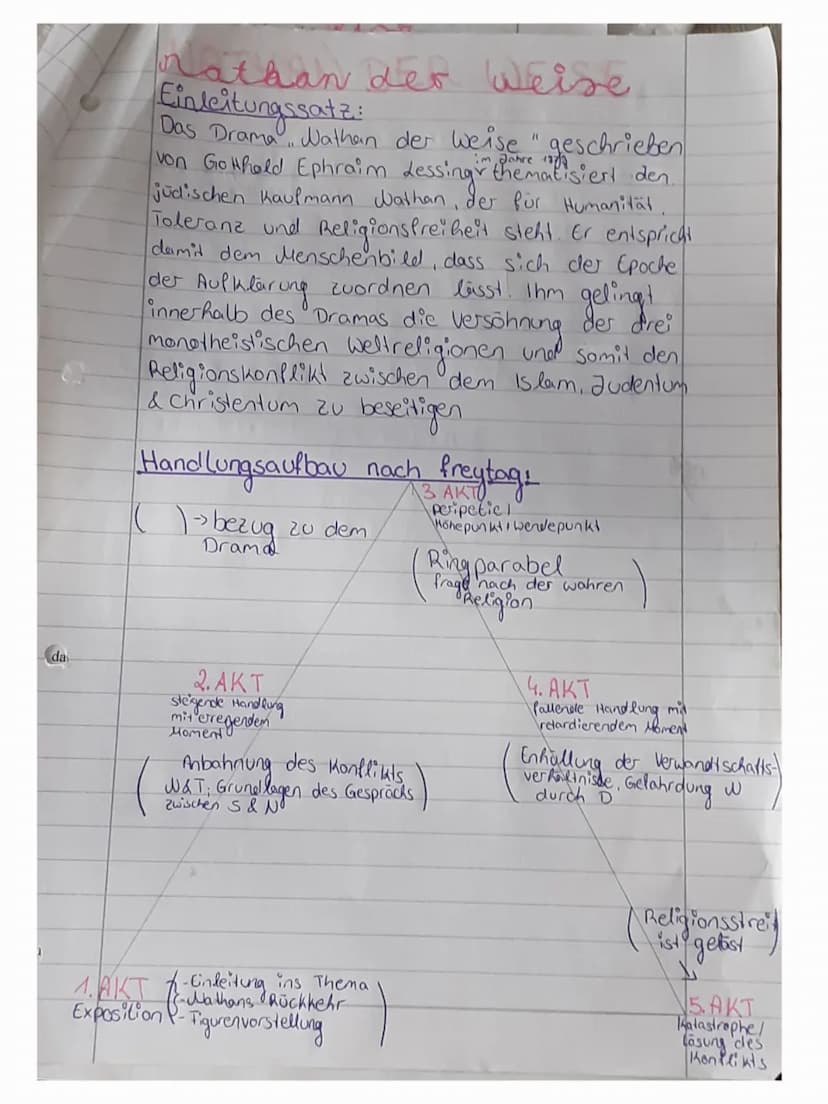 Nathan der Weise
Einleitungssatz:
Das Drama „Nathan der Weise" geschrieben
im Jahre
von Gotthold Ephraim Lessing thematisiert den
jüdischen Kaufmann Nathan, der für Humanität,
Toleranz und Religionsfreiheit steht. Er entspricht
damit dem Menschenbild, dass sich der Epoche
der Aufklärung zuordnen lässt. Ihm gelingt
innerhalb des Dramas die Versöhnung der drei
monotheistischen Weltreligionen und somit den
Religionskonflikt zwischen dem Islam, Judentum
& Christentum zu beseitigen
Handlungsaufbau nach freytag:
( ) → bezug zu dem
Drama
3. AKT
peripetie/
Höhepunkt/wendepunkt
(Ringparabel
frage nach der wahren
Religion)
2. AKT
steigende Handlung
mit erregendem
Moment
(Anbahnung des Konflikts
N&T, Grundlagen des Gesprächs
zwischen S & N)
4. AKT
fallende Handlung mit
retardierendem Moment
(Enhüllung der Verwandtschafts-
verhältnisse, Gefährdung N
durch D)
da
(Religionsstreit
ist gelöst)
1. AKT
Exposition
(-Einleitung ins Thema
-Nathans Rückkehr
-Figurenvorstellung)
5. AKT
Katastrophe/
Lösung des
Konflikts